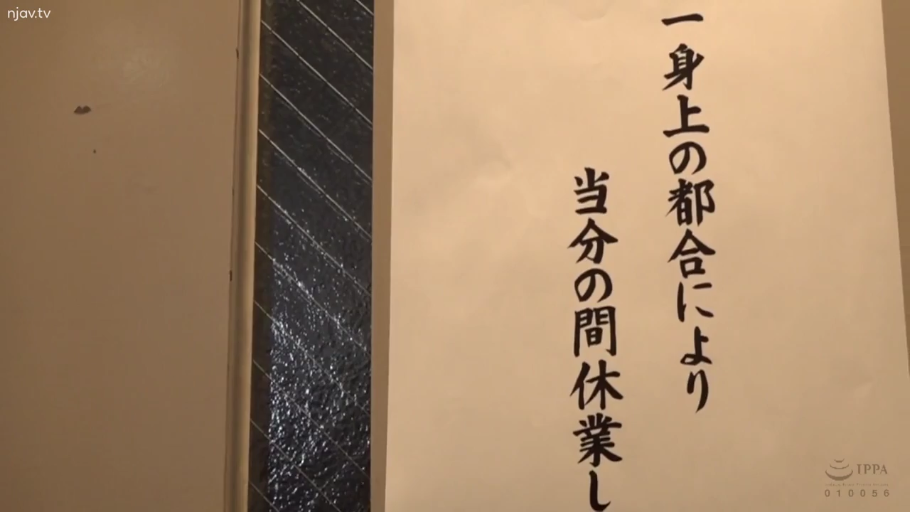 njav.tv
一身上の都合により
当分の間休業し
IPPA
010056